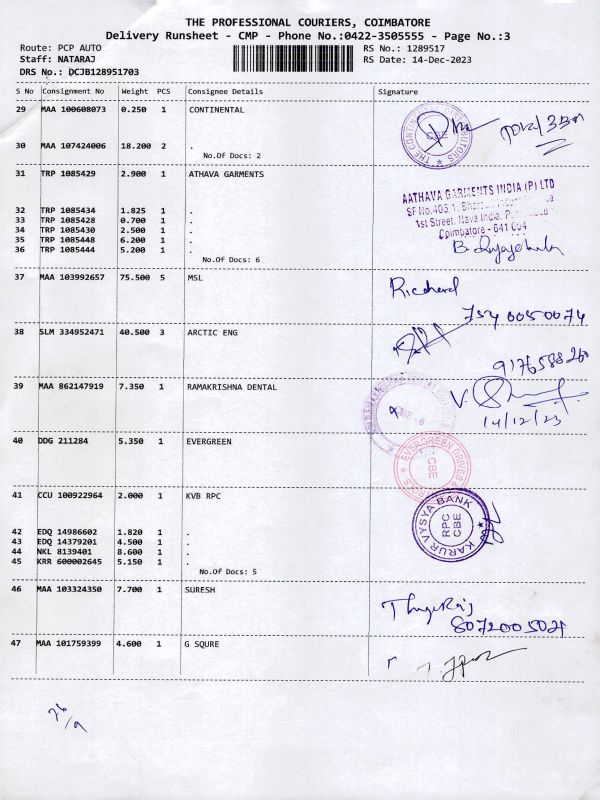 THE PROFESSIONAL COURIERS, COIMBATORE
Delivery Runsheet - CMP - Phone No.:0422-3505555 - Page No.:3
Route: PCP AUTO RS No.: 1289517
Staff: NATARAJ RS Date: 14-Dec-2023
DRS No.: DCJB128951703
S No Consignment No Weight PCS Consignee Details Signature
29 MAA 100608073 0.250 1 CONTINENTAL
CBE
30 MAA 107424006 18.200 2 .
No.Of Docs: 2
31 TRP 1085429 2.900 1 ATHAVA GARMENTS
AATHAVA GARMENTS INDIA (P) LTD
1st Street, Nava India,
Coimbatore - 641 004
32 TRP 1085434 1.825 1 .
33 TRP 1085428 0.700 1 .
34 TRP 1085430 2.500 1 .
35 TRP 1085448 6.200 1 .
36 TRP 1085444 5.200 1 .
No.Of Docs: 6
37 MAA 103992657 75.500 5 MSL
Richard
38 SLM 334952471 40.500 3 ARCTIC ENG
39 MAA 862147919 7.350 1 RAMAKRISHNA DENTAL
14/12/23
40 DDG 211284 5.350 1 EVERGREEN
EVERGREEN DRIVES
CBE
41 CCU 100922964 2.000 1 KVB RPC
KARUR VYSYA BANK
RPC
CBE
42 EDQ 14986602 1.820 1 .
43 EDQ 14379201 4.500 1 .
44 NKL 8139401 8.600 1 .
45 KRR 600002645 5.150 1 .
No.Of Docs: 5
46 MAA 103324350 7.700 1 SURESH
47 MAA 101759399 4.600 1 G SQURE